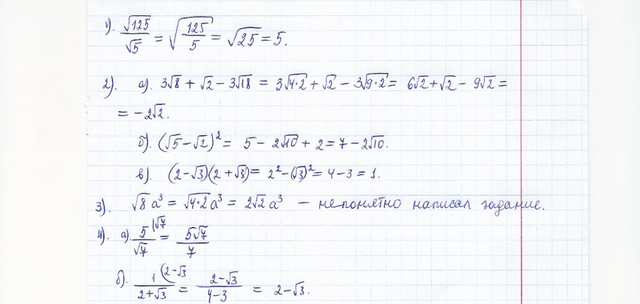 1). √125/√5 = √(125/5) = √25 = 5.
2). а). 3√8 + √2 - 3√18 = 3√4·2 + √2 - 3√9·2 = 6√2 + √2 - 9√2 =
= -2√2.
б). (√5 - √2)² = 5 - 2√10 + 2 = 7 - 2√10.
в). (2 - √3)(2 + √3) = 2² - (√3)² = 4 - 3 = 1.
3). √8 a³ = √4·2 a³ = 2√2 a³ — непонятно написал задание.
4). а). 5/√7 |√7 = 5√7/7
б). 1/(2+√3) (2-√3 = (2-√3)/(4-3) = 2-√3.